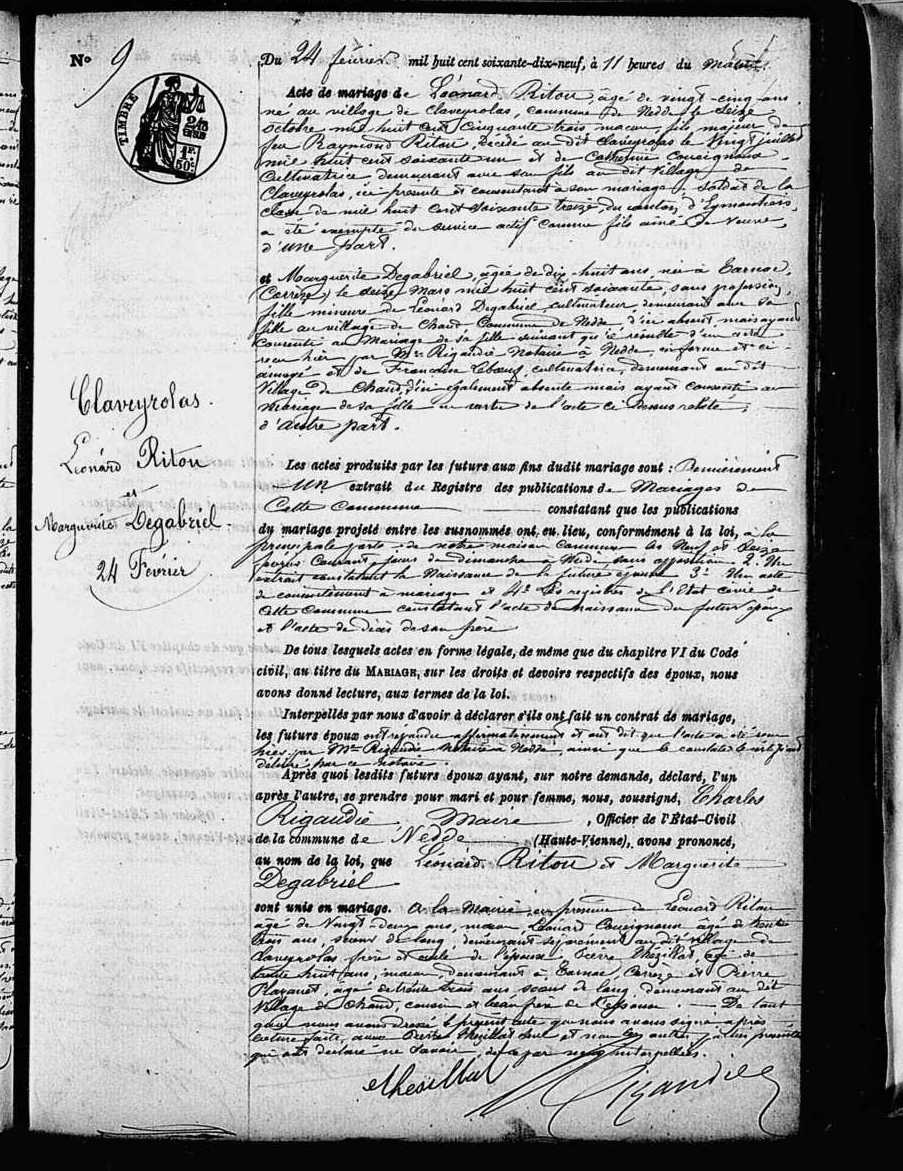 No 9
TIMBRE
Du 24 février mil huit cent soixante-dix-neuf, à 11 heures du matin.
Acte de mariage de Léonard Ritou, âgé de vingt-cinq ans
né au village de Claveyrolas, commune de Nedde le seize
octobre mil huit cent cinquante trois, maçon, fils majeur de
feu Raymond Ritou, décédé au dit Claveyrolas le vingt juillet
mil huit cent soixante un et de Catherine
Cultivatrice demeurant avec son fils au dit village de
Claveyrolas, ici présente et consentant à son mariage, soldat de la
classe de mil huit cent soixante treize, du canton d'Eymoutiers,
a été exempté du service actif comme fils aîné de veuve,
d'une part.
et Marguerite Degabriel, âgée de dix-huit ans, née à Tarnac,
(Corrèze) le seize mars mil huit cent soixante, sans profession,
fille mineure de Léonard Degabriel, cultivateur, demeurant avec sa
fille au village de Chaud Commune de Nedde, d'ici absent mais ayant
consenti au mariage de sa fille suivant qu'il résulte d'un acte
reçu hier par Me Rigaudie notaire à Nedde, en forme et ci-
annexé et de Françoise Lebœuf, cultivatrice, demeurant au dit
village de Chaud, d'ici également absente mais ayant consenti au
mariage de sa fille en vertu de l'acte ci dessus relaté,
d'autre part.
Claveyrolas.
Léonard Ritou
et
Marguerite Degabriel.
24 Février
Les actes produits par les futurs aux fins dudit mariage sont : Premièrement
un extrait du Registre des publications de Mariages de
Cette Commune constatant que les publications
du mariage projeté entre les susnommés ont eu lieu, conformément à la loi, à la
principale porte de notre maison commune les neuf et seize
courant, jours de dimanche à midi, sans opposition 2° Un
extrait constatant la Naissance de la future épouse 3° Un acte
de consentement à mariage et 4° Les registres de l'Etat civil de
Cette Commune constatant l'acte de naissance du futur époux
et l'acte de décès de son père
De tous lesquels actes en forme légale, de même que du chapitre VI du Code
civil, au titre du MARIAGE, sur les droits et devoirs respectifs des époux, nous
avons donné lecture, aux termes de la loi.
Interpellés par nous d'avoir à déclarer s'ils ont fait un contrat de mariage,
les futurs époux ont répondu affirmativement et ont dit que l'acte a été reçu
hier par Me Rigaudie Notaire à Nedde, ainsi que le constate le certificat
délivré par ce notaire.
Après quoi lesdits futurs époux ayant, sur notre demande, déclaré, l'un
après l'autre, se prendre pour mari et pour femme, nous, soussigné, Charles
Rigaudie Maire, Officier de l'Etat-Civil
de la commune de Nedde (Haute-Vienne), avons prononcé,
au nom de la loi, que Léonard Ritou et Marguerite
Degabriel
sont unis en mariage. A la Mairie, en présence de Léonard Ritou
âgé de vingt-deux ans, maçon, Léonard âgé de trente
trois ans, scieur de long, demeurant séparément au dit village de
Claveyrolas frère et oncle de l'époux, Pierre Thézillat, âgé de
trente huit ans, maçon, demeurant à Tarnac, Corrèze et Pierre
âgé de trente trois ans scieur de long, demeurant au dit
village de Chaud, cousin et beau frère de l'épouse. De tout
quoi nous avons dressé le présent acte que nous avons signé après
lecture faite, avec Pierre Thézillat seul et non les autres
qui ont déclaré ne savoir, de ce par nous interpellés.
Thézillat
Rigaudie